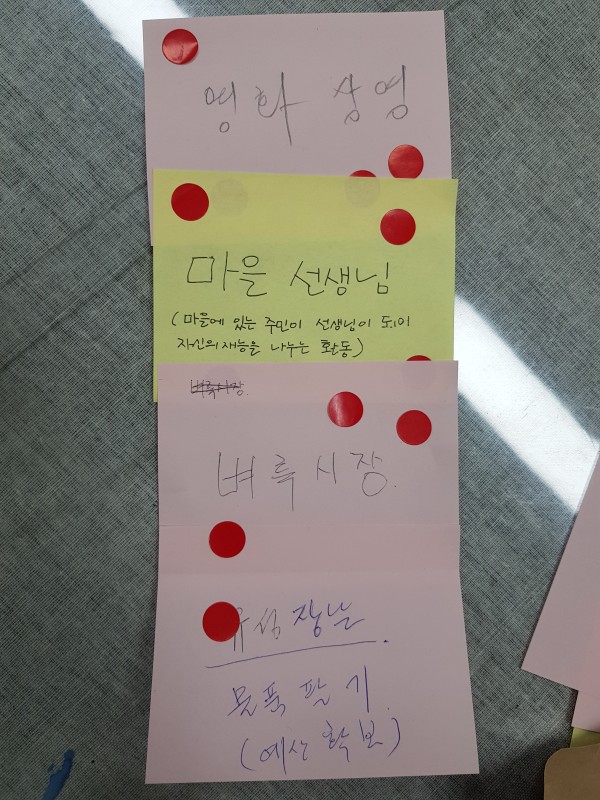 영화 상영
마을 선생님
(마을에 있는 주민이 선생님이 되어
자신의 재능을 나누는 활동)
벼륙시장.
벼륙시장.
유성 장날
물품 팔기
(예산 확보)